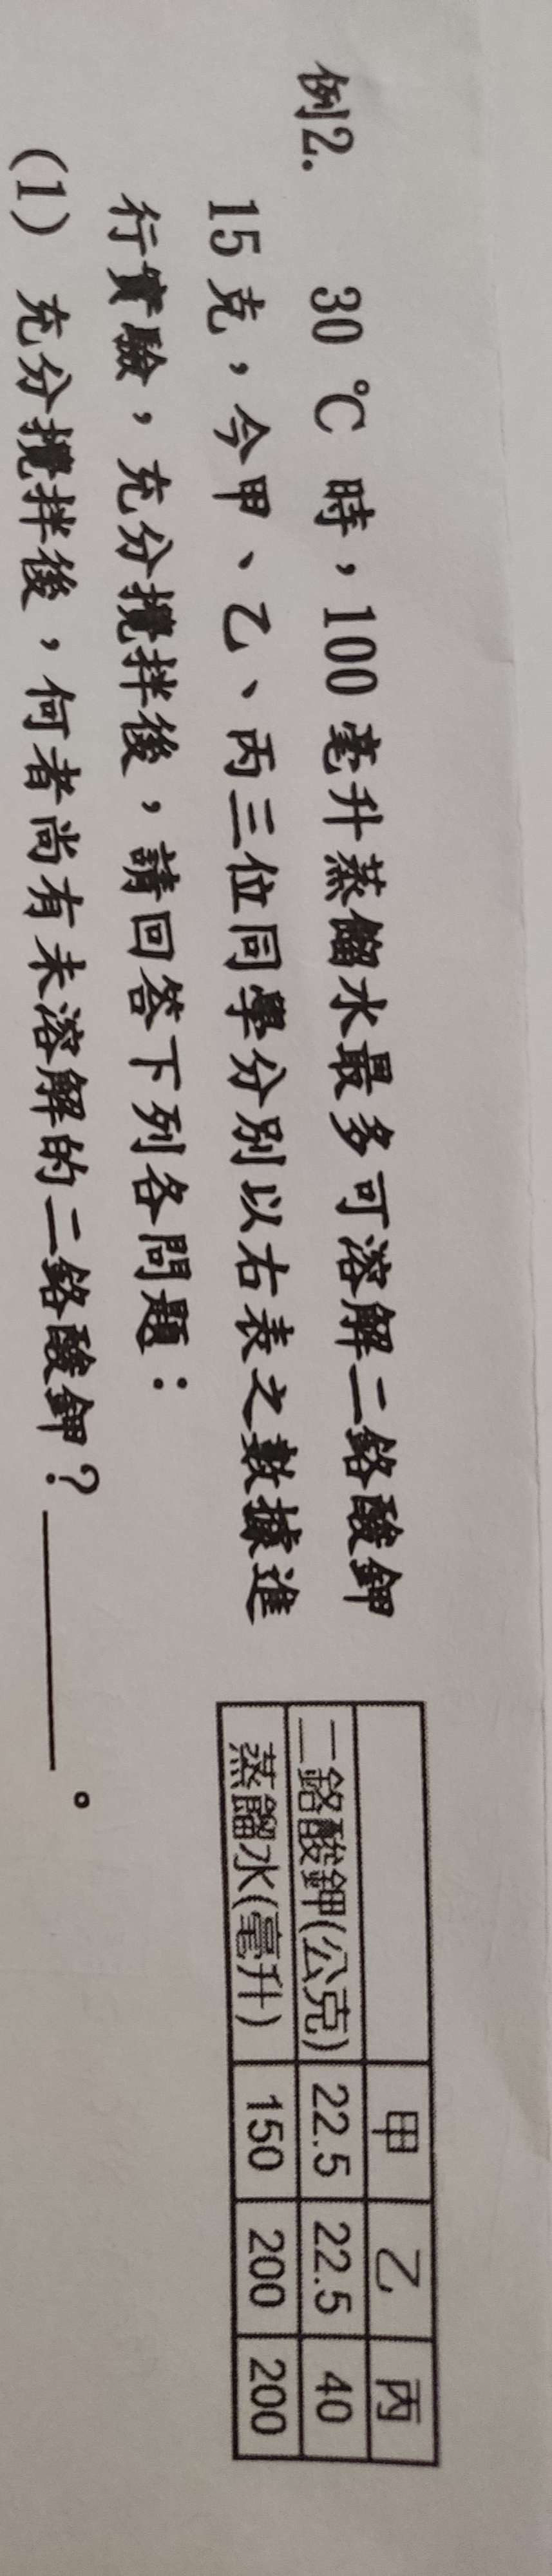 例2. 30 ℃ 時，100 毫升蒸餾水最多可溶解二鉻酸鉀
15 克，今甲、乙、丙三位同學分別以右表之數據進
行實驗，充分攪拌後，請回答下列各問題：
(1) 充分攪拌後，何者尚有未溶解的二鉻酸鉀？＿＿＿＿。
甲 乙 丙
二鉻酸鉀(公克) 22.5 22.5 40
蒸餾水(毫升) 150 200 200